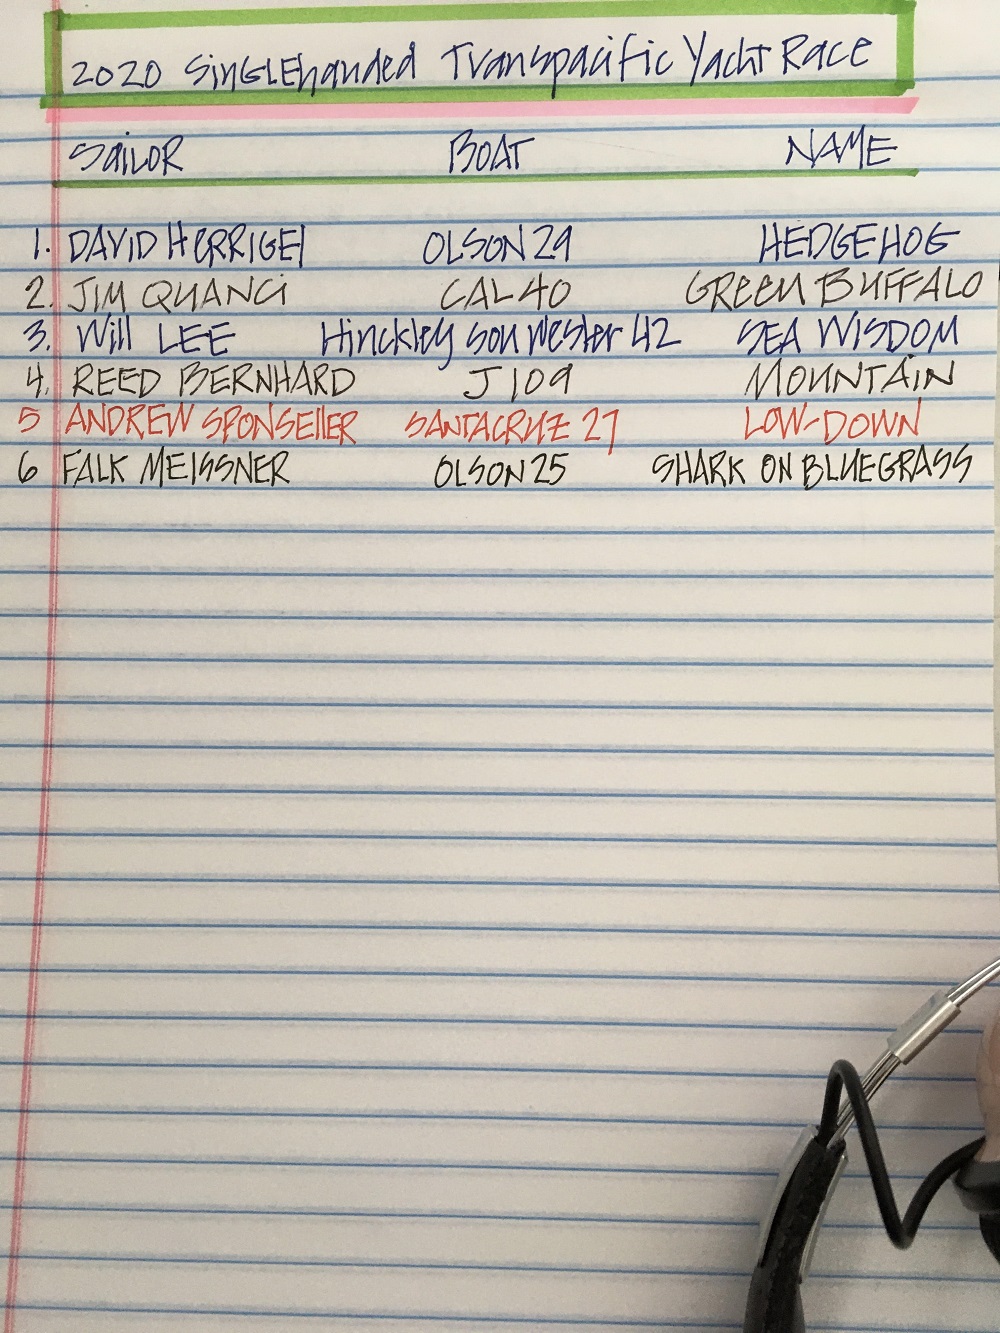 2020 SinGLEhanded Transpacific Yacht Race
SaiLOR BOAT NAME
1. DAVID HERRIGEl OLSON 29 HEDGEHOG
2. JIM QUANCi CAL 40 GREEN BUFFALO
3. Will LEE Hinckley Sou Wester 42 SEA WISDOM
4. REED BERNHARD J 109 MOUNTAiN
5 ANDREW SPONSEllER SANTACRUZ 27 LOW-DOWN
6 FALK MEISSNER OLSON 25 SHARK ON BLUEGRASS